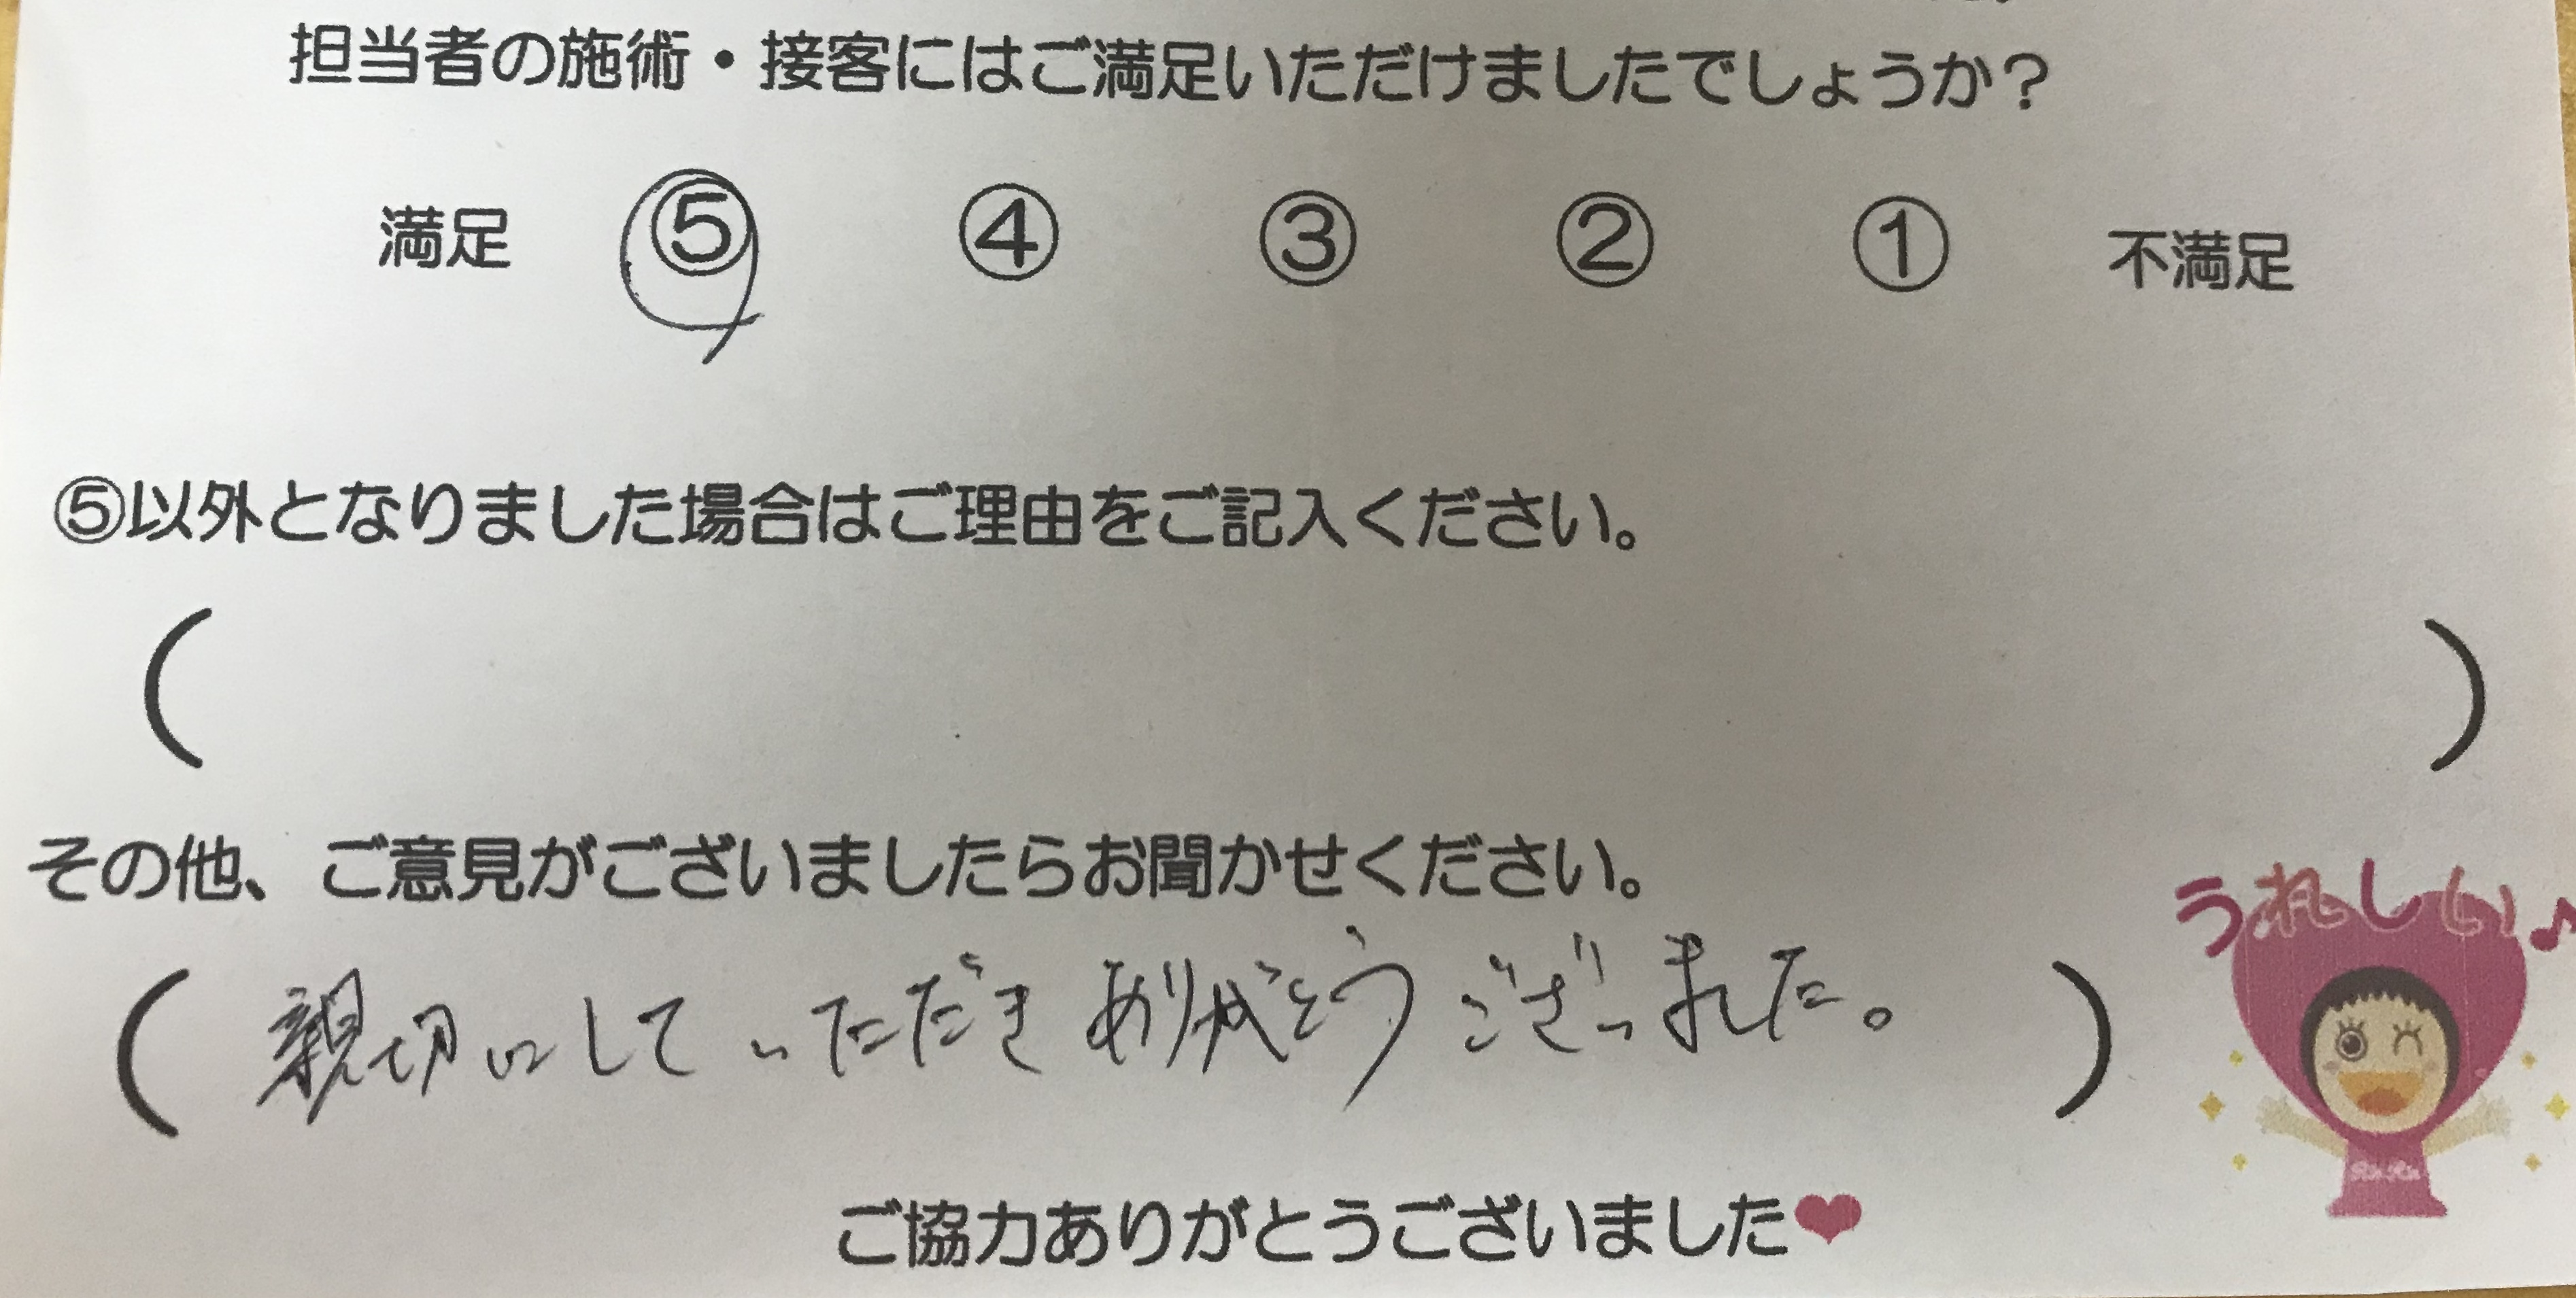 担当者の施術・接客にはご満足いただけましたでしょうか？
満足 ⑤ ④ ③ ② ① 不満足
⑤以外となりました場合はご理由をご記入ください。
( )
その他、ご意見がございましたらお聞かせください。
うれしい♪
( 親切にして いただき ありがとう ございました。 )
RinRin
ご協力ありがとうございました❤